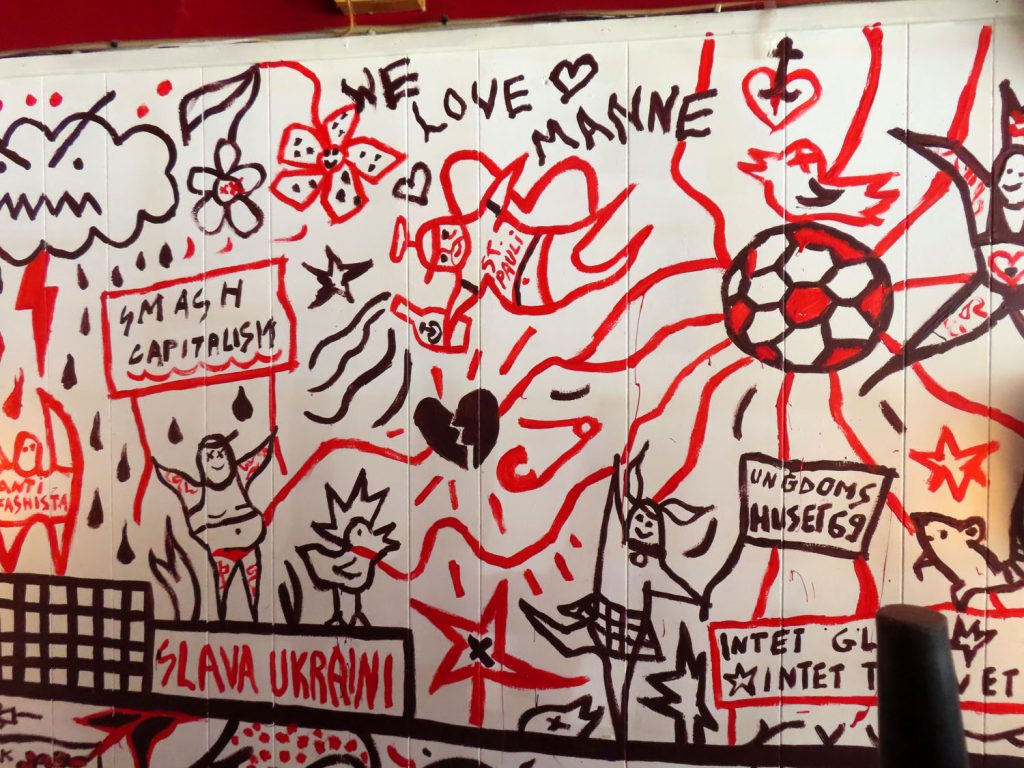 WE
LOVE
MANNE
ST.
PAULI
SMASH
CAPITALISM
ANTI
FASHISTA
UNGDOMS
HUSET69
SLAVA UKRAINI
INTET
INTET